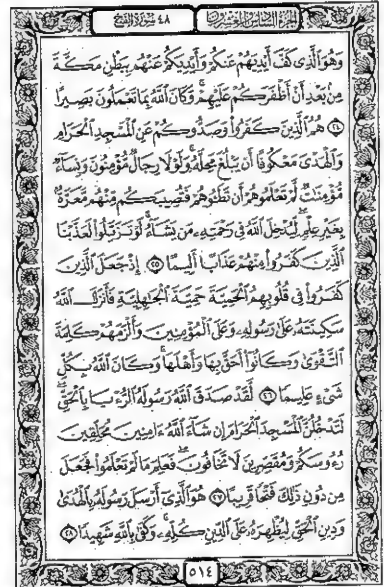 الجزء السادس والعشرون ٤٨ سورة الفتح
وَهُوَ ٱلَّذِى كَفَّ أَيْدِيَهُمْ عَنكُمْ وَأَيْدِيَكُمْ عَنْهُم بِبَطْنِ مَكَّةَ
مِنۢ بَعْدِ أَنْ أَظْفَرَكُمْ عَلَيْهِمْ ۚ وَكَانَ ٱللَّهُ بِمَا تَعْمَلُونَ بَصِيرًا
٢٤ هُمُ ٱلَّذِينَ كَفَرُوا۟ وَصَدُّوكُمْ عَنِ ٱلْمَسْجِدِ ٱلْحَرَامِ
وَٱلْهَدْىَ مَعْكُوفًا أَن يَبْلُغَ مَحِلَّهُۥ ۚ وَلَوْلَا رِجَالٌ مُّؤْمِنُونَ وَنِسَآءٌ
مُّؤْمِنَٰتٌ لَّمْ تَعْلَمُوهُمْ أَن تَطَـُٔوهُمْ فَتُصِيبَكُم مِّنْهُم مَّعَرَّةٌۢ
بِغَيْرِ عِلْمٍ ۖ لِّيُدْخِلَ ٱللَّهُ فِى رَحْمَتِهِۦ مَن يَشَآءُ ۚ لَوْ تَزَيَّلُوا۟ لَعَذَّبْنَا
ٱلَّذِينَ كَفَرُوا۟ مِنْهُمْ عَذَابًا أَلِيمًا ٢٥ إِذْ جَعَلَ ٱلَّذِينَ
كَفَرُوا۟ فِى قُلُوبِهِمُ ٱلْحَمِيَّةَ حَمِيَّةَ ٱلْجَٰهِلِيَّةِ فَأَنزَلَ ٱللَّهُ
سَكِينَتَهُۥ عَلَىٰ رَسُولِهِۦ وَعَلَى ٱلْمُؤْمِنِينَ وَأَلْزَمَهُمْ كَلِمَةَ
ٱلتَّقْوَىٰ وَكَانُوٓا۟ أَحَقَّ بِهَا وَأَهْلَهَا ۚ وَكَانَ ٱللَّهُ بِكُلِّ
شَىْءٍ عَلِيمًا ٢٦ لَّقَدْ صَدَقَ ٱللَّهُ رَسُولَهُ ٱلرُّءْيَا بِٱلْحَقِّ ۖ
لَتَدْخُلُنَّ ٱلْمَسْجِدَ ٱلْحَرَامَ إِن شَآءَ ٱللَّهُ ءَامِنِينَ مُحَلِّقِينَ
رُءُوسَكُمْ وَمُقَصِّرِينَ لَا تَخَافُونَ ۖ فَعَلِمَ مَا لَمْ تَعْلَمُوا۟ فَجَعَلَ
مِن دُونِ ذَٰلِكَ فَتْحًا قَرِيبًا ٢٧ هُوَ ٱلَّذِىٓ أَرْسَلَ رَسُولَهُۥ بِٱلْهُدَىٰ
وَدِينِ ٱلْحَقِّ لِيُظْهِرَهُۥ عَلَى ٱلدِّينِ كُلِّهِۦ ۚ وَكَفَىٰ بِٱللَّهِ شَهِيدًا ٢٨
٥١٤